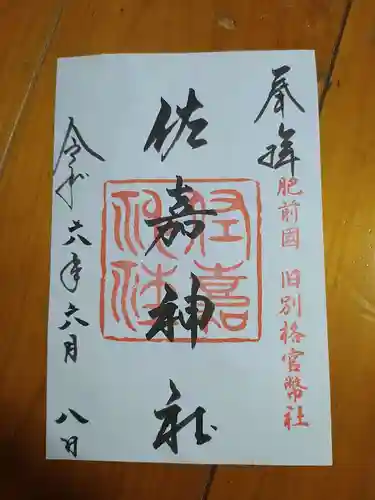 奉拝
肥前国 旧別格官幣社
佐嘉神社
佐嘉神社
令和六年六月八日